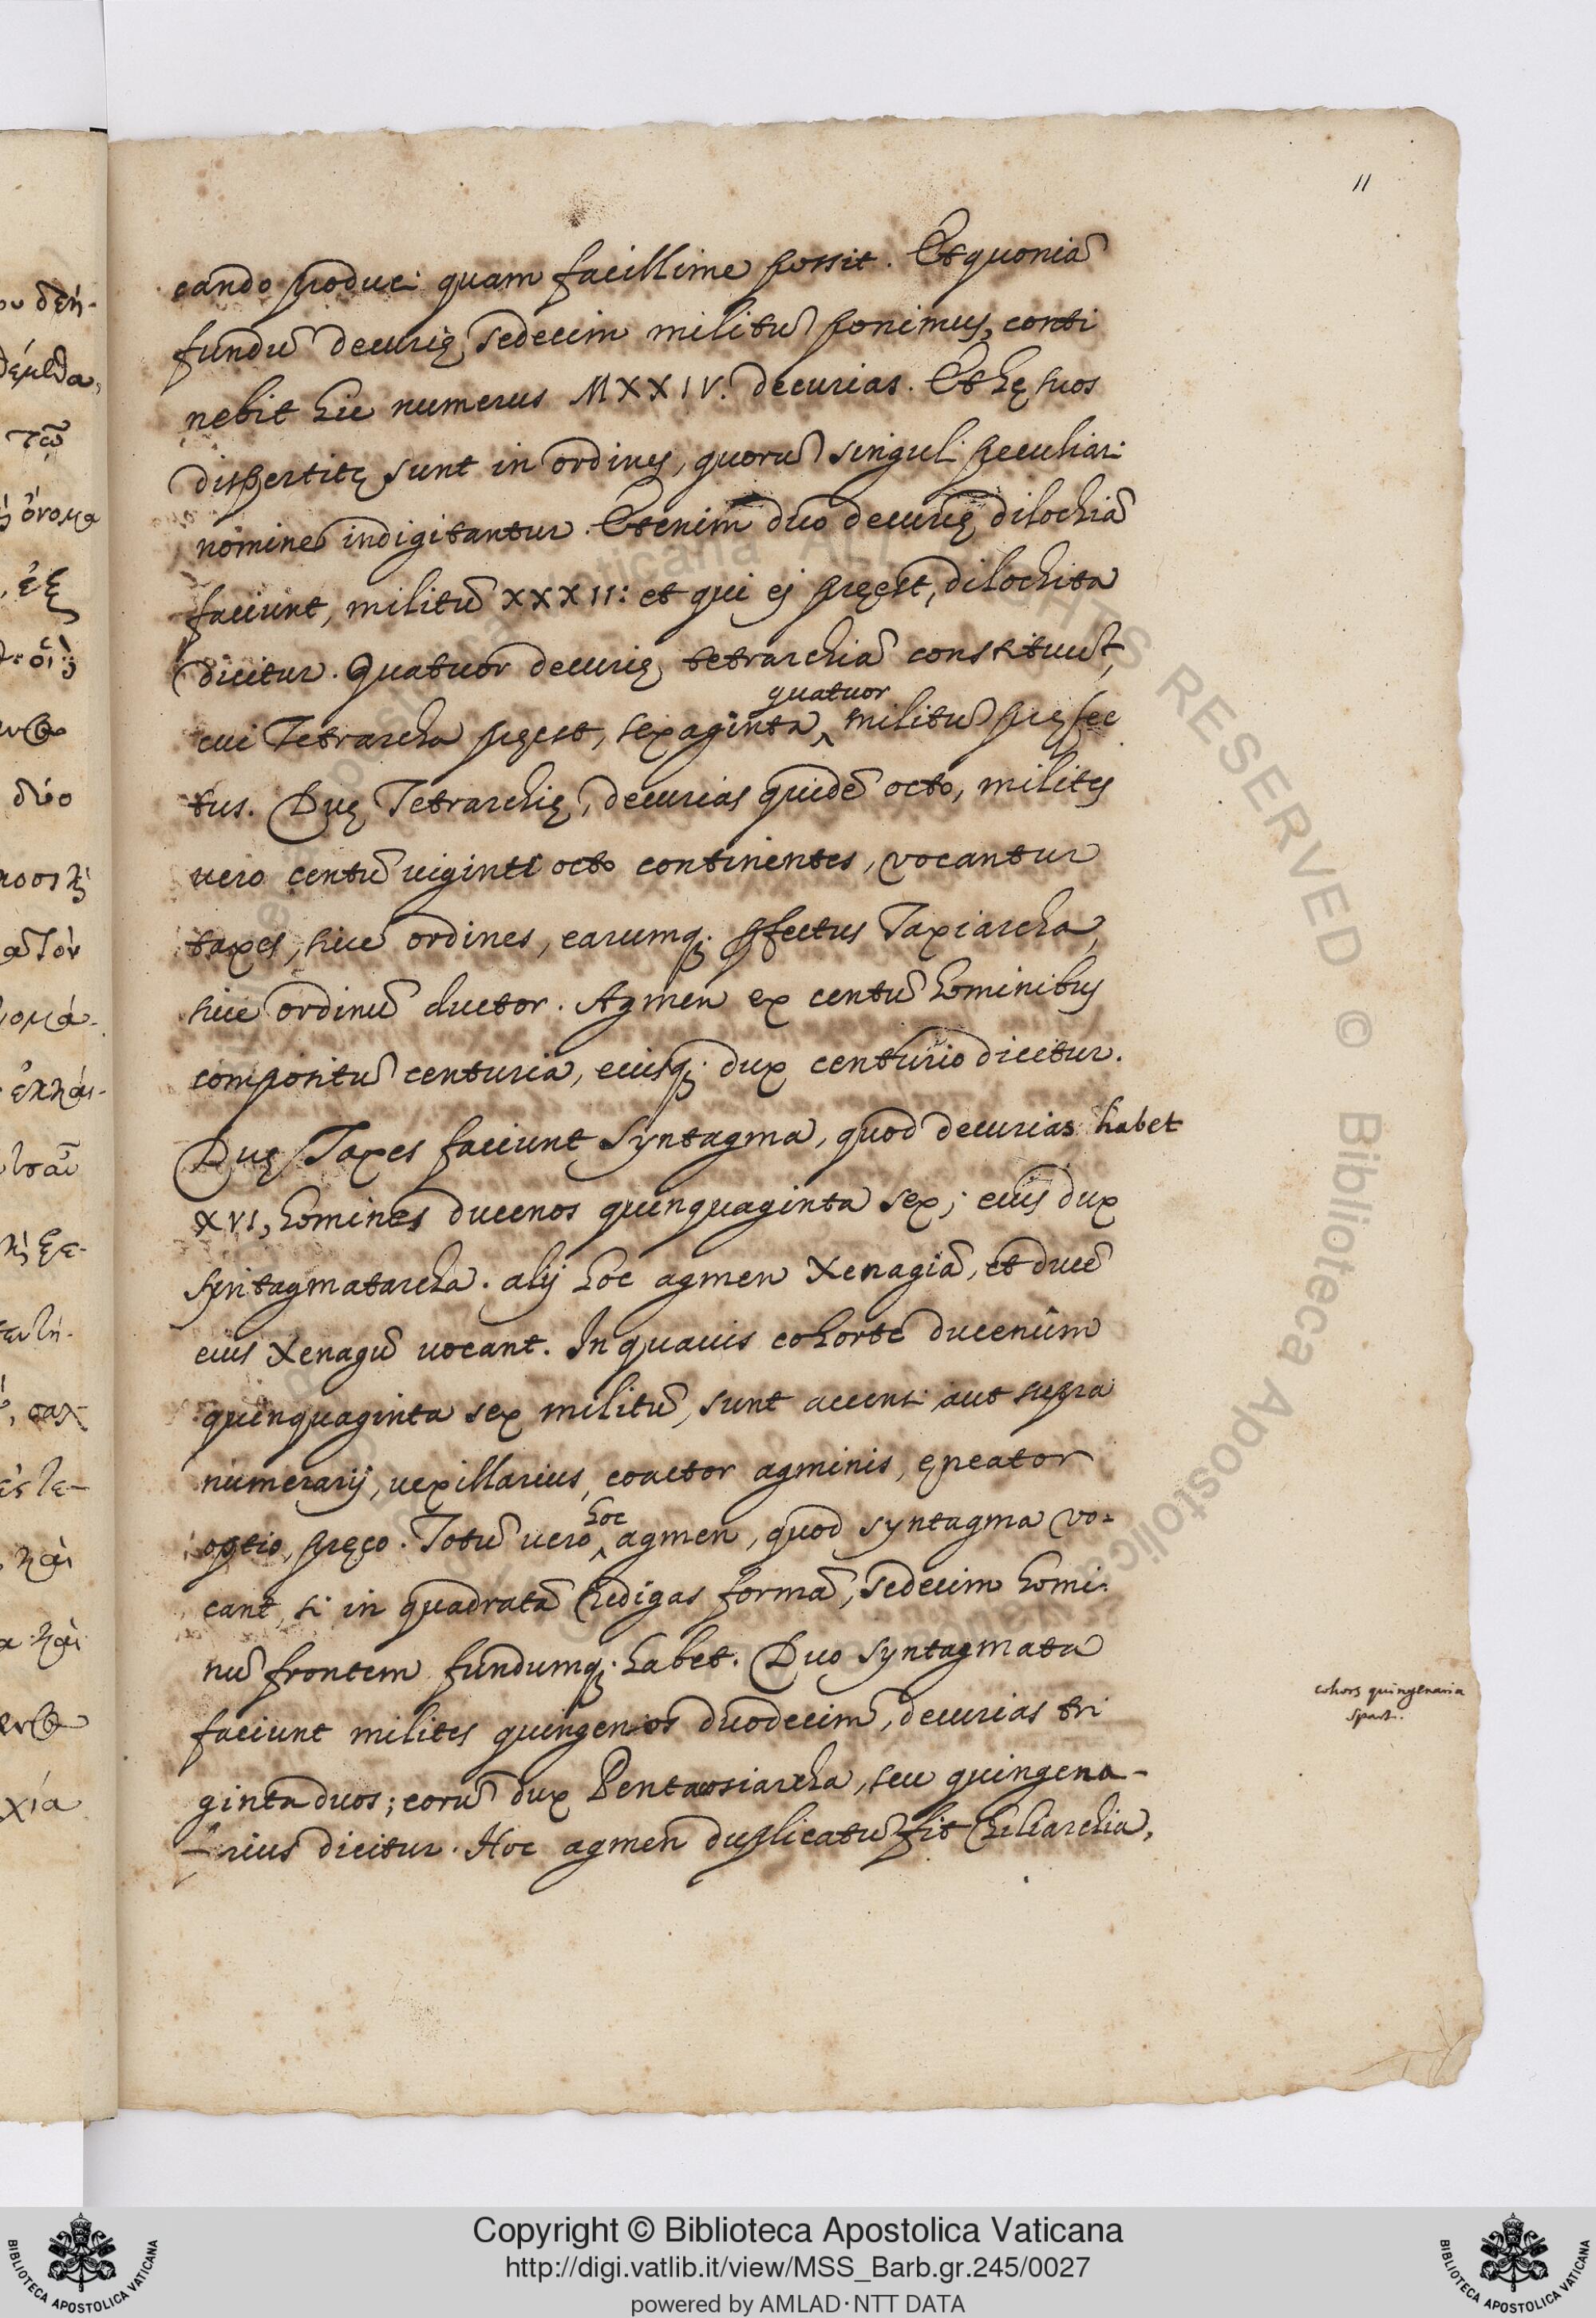 11
cando produci quam facillime possit. Et quoniã
fundũ decurię sedecim militũ ponimus, conti
nebit hic numerus MXXIV. decurias. Et hę suos
dispertitę sunt in ordines, quorũ singuli peculiari
nomine indigitantur. Etenim duo decurię dilochiã
faciunt, militũ XXXII: et qui ej pręest, dilochita
dicitur. Quatuor decurię tetrarchiã constituũt,
cui Tetrarcha pręest, sexaginta ‸quatuor militũ pręfec
tus. Duę Tetrarchię, decurias quidẽ octo, milites
uero centũ uiginti octo continentes, vocantur
taxes, siue ordines, earumq; pfectus Taxiarcha,
siue ordinũ ductor. Agmen ex centũ hominibus
compositũ centuria, eiusq; dux centurio dicitur.
Duę Taxes faciunt Syntagma, quod decurias habet
XVI, homines ducenos quinquaginta sex; eius dux
syntagmatarcha. alij hoc agmen Xenagiã, et ducẽ
eius Xenagũ uocant. In quauis cohorte ducenûm
quinquaginta sex militũ, sunt accensi aut supra
numerarij, uexillarius, coactor agminis, ęneator
optio, pręco. Totũ uero ‸hoc agmen, quod syntagma vo-
cant, si in quadratã redigas formã, sedecim homi-
nũ frontem fundumq; habet. Duo syntagmata
faciunt milites quingenos duodecim, decurias tri
ginta duos; eorũ dux Pentacosiarcha, seu quingena-
rius dicitur. Hoc agmen duplicatũ fit Chiliarchia,
cohors quingenaria
Spart.
ου δεή-
τῶ
ὄνομα
ἐξ
δύο
χία
Copyright © Biblioteca Apostolica Vaticana
http://digi.vatlib.it/view/MSS_Barb.gr.245/0027
powered by AMLAD·NTT DATA
BIBLIOTECA APOSTOLICA VATICANA
BIBLIOTECA APOSTOLICA VATICANA